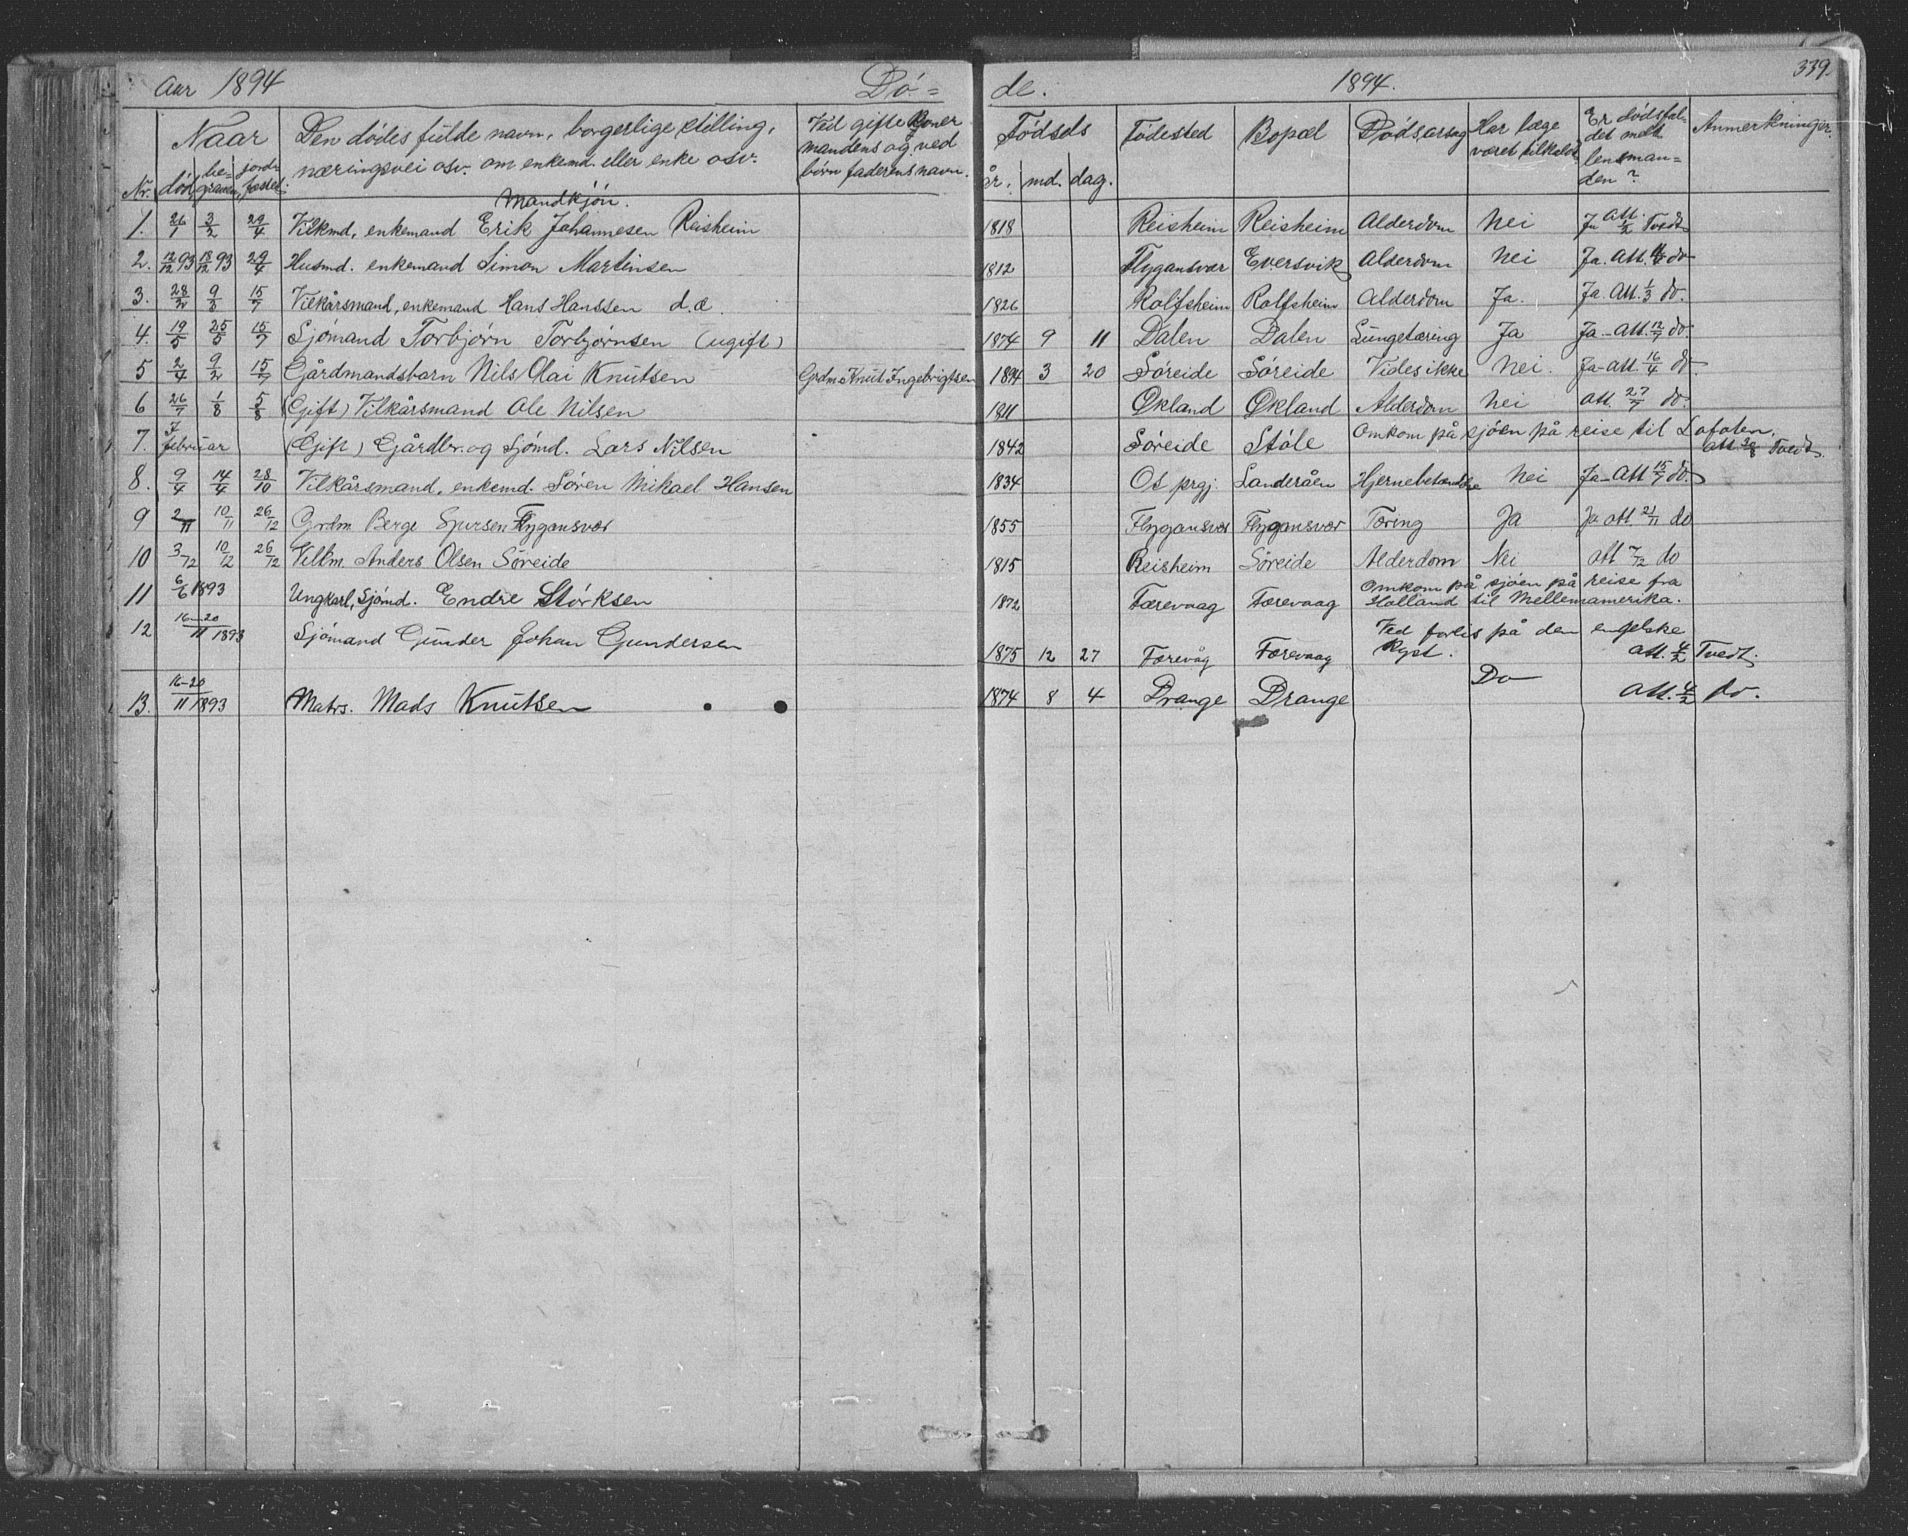 Aar 1894 Dø=
de. 1894. 339.
Naar Den dödes fulde navn, borgerlige stilling, næringsvei osv. om enkemd. eller enke osv. Ved gifte koner mandens og ved börn faderens navn.
Nr. död, be-graven, jords-fæstet.
Födsels år. md. dag. Födested Bopæl Dödsarsag Har læge været tilkaldt Er dödsfal-det melt lensman=den? Anmerkninger.
Mandkjön.
1. 26/1 3/2 29/4 Vilkmd, enkemand Erik Johannesen Reisheim 1818 Reisheim Reisheim Alderdom Nei Ja att. 1/2 Tvedt
2. 12/12 93 18/12 93 29/4 Husmd. enkemand Simon Martinsen 1812 Flygansvær Eversvik Alderdom Nei Ja. Att. do
3. 28/2 9/3 15/7 Vilkårsmand, enkemand Hans Hanssen d.æ. 1826 Rolfsheim Rolfsheim Alderdom Ja. Ja. Att. 1/3 do.
4. 19/5 25/5 15/7 Sjömand Torbjørn Torbjørnsen (ugift) 1874 9 11 Dalen Dalen Lungetæring Ja Ja - Att. 12/7 do.
5 2/4 9/4 15/7 Gårdmandsbarn Nils Olai Knutsen Grdm. Knut Ingebrigtsen 1894 3 20 Söreide Söreide Vides ikke Nei. Ja - att. 16/4 do.
6 26/7 1/8 5/8 (Gift) Vilkårsmand Ole Nilsen 1811 Økland Økland Alderdom Nei att. 27/7 do.
7. I februar (Gift) Gårdbr. og Sjömd. Lars Nilsen 1842 Söreide Stöle Omkom på sjöen på reise til Lofoten.
att. 20/8 Tvedt
8. 9/4 14/4 28/10 Vilkårsmand, enkemd. Sören Mikael Hansen 1834 Os prgj. Landeråen Hjernebetændelse Nei Ja - Att 15/7 do.
9 2/11 10/11 26/12 Grdm Berge Sjursen Flygansvær 1855 Flygansvær Flygansvær Tæring Ja Ja att. 21/11 do
10 3/12 10/12 26/12 Vilkm. Anders Olsen Söreide 1815 Reisheim Söreide Alderdom Nei att 7/12 do
11 6/6 1893 Ungkarl, Sjömd. Endre Störksen 1872 Færevaag Færevaag Omkom på sjöen på reise fra
Holland til Mellemamerika.
12 16-20/11 1893 Sjömand Gunder Johan Gundersen 1875 12 27 Færevåg Færevaag Ved forlis på den engelske
Kyst. att. 4/2 Tvedt.
13. 16-20/11 1893 Matrs. Mads Knutsen 1874 8 4 Drange Drange Do att. 4/2 do.